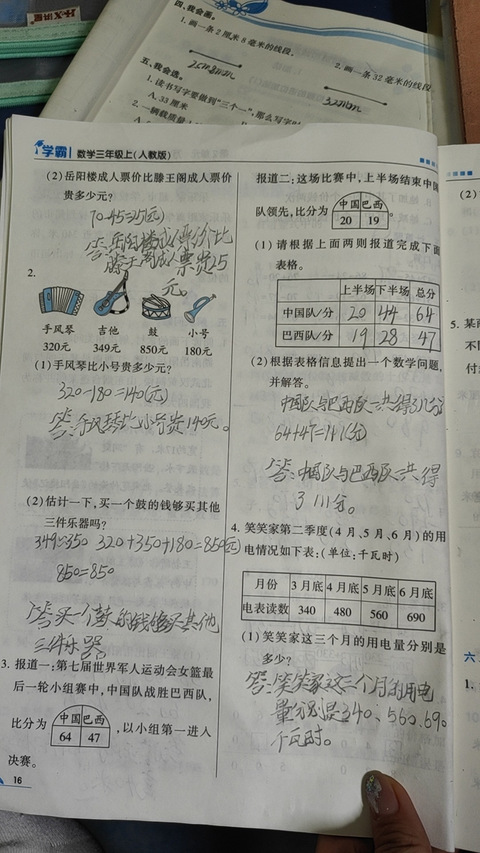 四、我会画。
1. 画一条 2 厘米 8 毫米的线段.
2cm8mm
2. 画一条 32 毫米的线段.
32mm
五、我会选。
1. 读书写字要做到"三个一",那么写字
A. 33 厘米
2. 一辆载质量
学霸 数学三年级上(人教版)
(2) 岳阳楼成人票价比滕王阁成人票价
贵多少元?
70-45=25(元)
答:岳阳楼成人票价比
滕王阁成人票贵25
元。
2.
手风琴 吉他 鼓 小号
320元 349元 850元 180元
(1) 手风琴比小号贵多少元?
320-180=140(元)
答:手风琴比小号贵140元。
(2) 估计一下,买一个鼓的钱够买其他
三件乐器吗?
349≈350 320+350+180=850(元)
850=850
答:买一个鼓的钱够买其他
三件乐器
3. 报道一:第七届世界军人运动会女篮最
后一轮小组赛中,中国队战胜巴西队,
比分为 中国 巴西 64 47 ,以小组第一进入
决赛。
16
报道二:这场比赛中,上半场结束中国
队领先,比分为 中国 巴西 20 19 。
(1) 请根据上面两则报道完成下面
表格。
上半场 下半场 总分
中国队/分 20 44 64
巴西队/分 19 28 47
(2) 根据表格信息提出一个数学问题,
并解答。
中国队与巴西队一共得了几分
64+47=111(分)
答:中国队与巴西队一共得
了111分。
4. 笑笑家第二季度(4 月、5 月、6 月)的用
电情况如下表:(单位:千瓦时)
月份 3 月底 4 月底 5 月底 6 月底
电表读数 340 480 560 690
(1) 笑笑家这三个月的用电量分别是
多少?
答:笑笑家这三个月的用电
量分别是340、560、690
千瓦时。
(2)
5. 某
不
付
六
1.